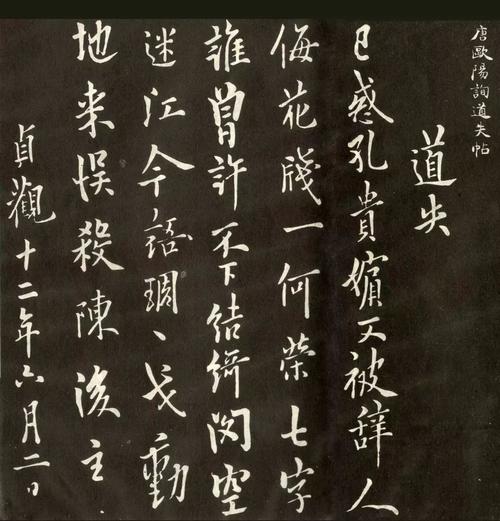 唐歐陽詢道失帖
道失
已惑孔貴嬪又被辞人
侮花牋一何榮七字
誰曾許不下結綺閣空
迷江令語琱丶戈動
地来悮殺陳後主
貞觀十二年六月二日